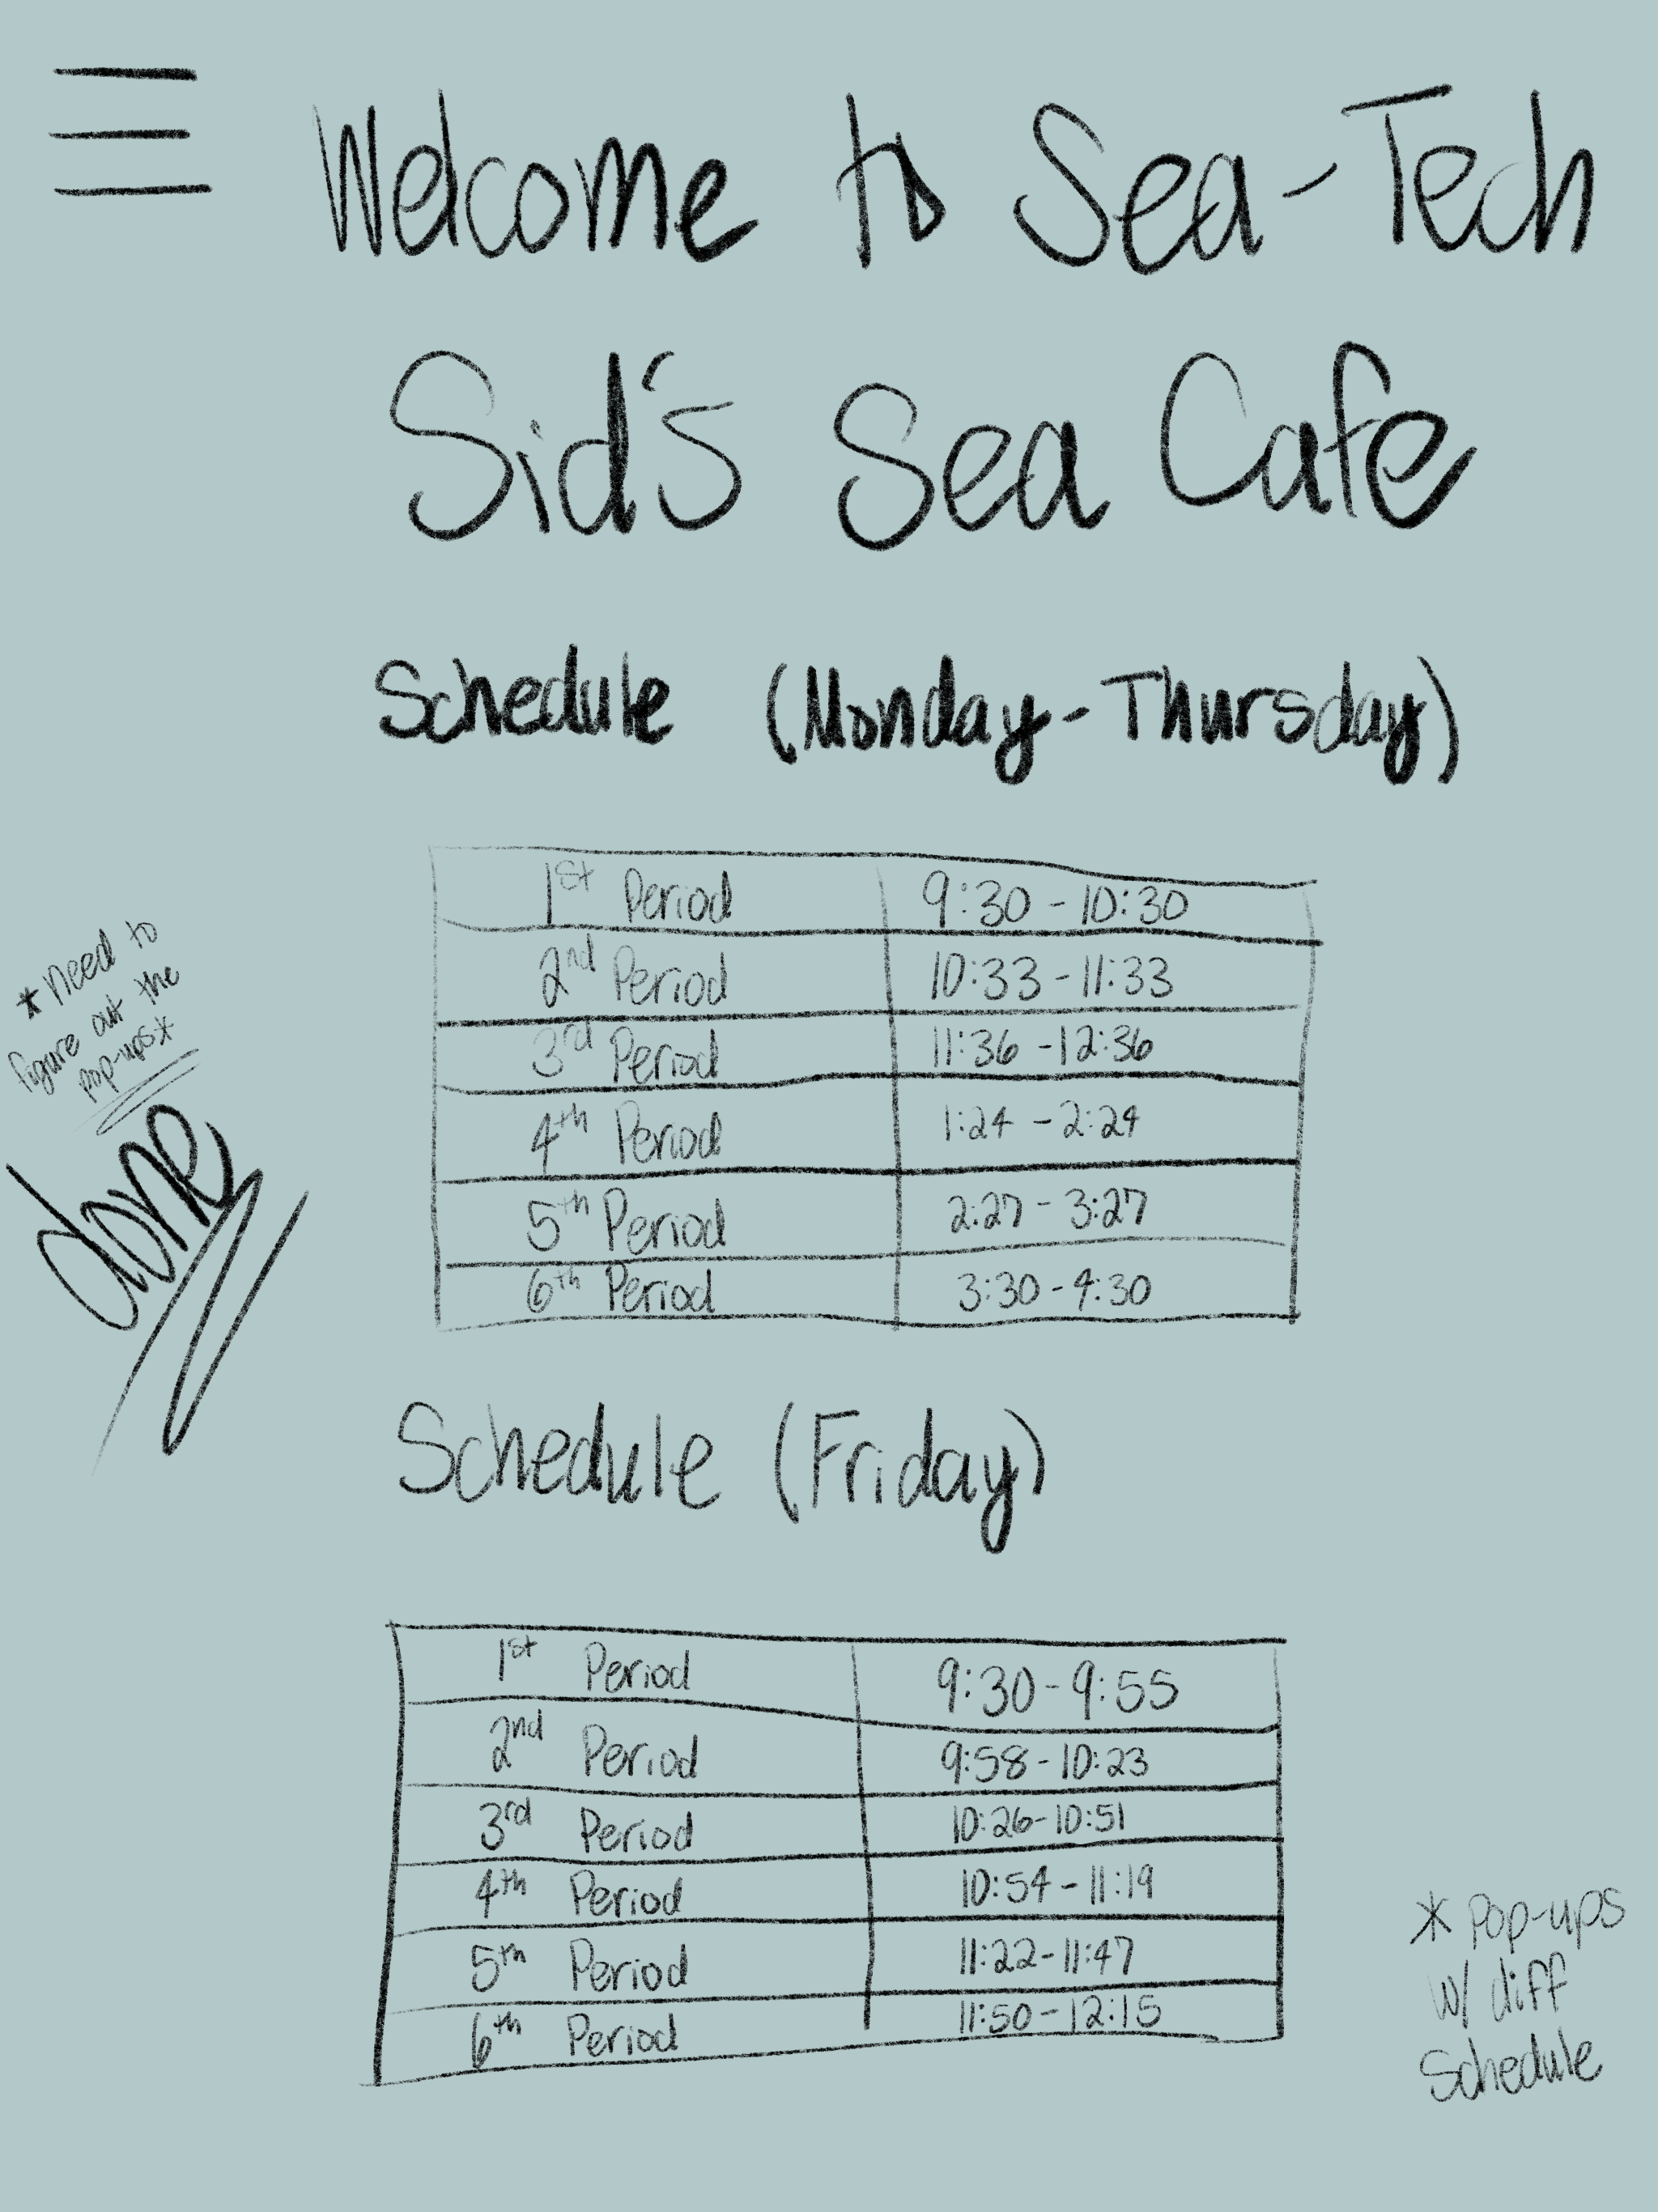 Welcome to Sea-Tech
Sid's Sea Cafe
Schedule (Monday-Thursday)
1st Period 9:30 - 10:30
2nd Period 10:33 - 11:33
3rd Period 11:36 - 12:36
4th Period 1:24 - 2:24
5th Period 2:27 - 3:27
6th Period 3:30 - 4:30
*need to
figure out the
pop-ups*
done
Schedule (Friday)
1st Period 9:30 - 9:55
2nd Period 9:58 - 10:23
3rd Period 10:26 - 10:51
4th Period 10:54 - 11:19
5th Period 11:22 - 11:47
6th Period 11:50 - 12:15
* Pop-ups
w/ diff
Schedule